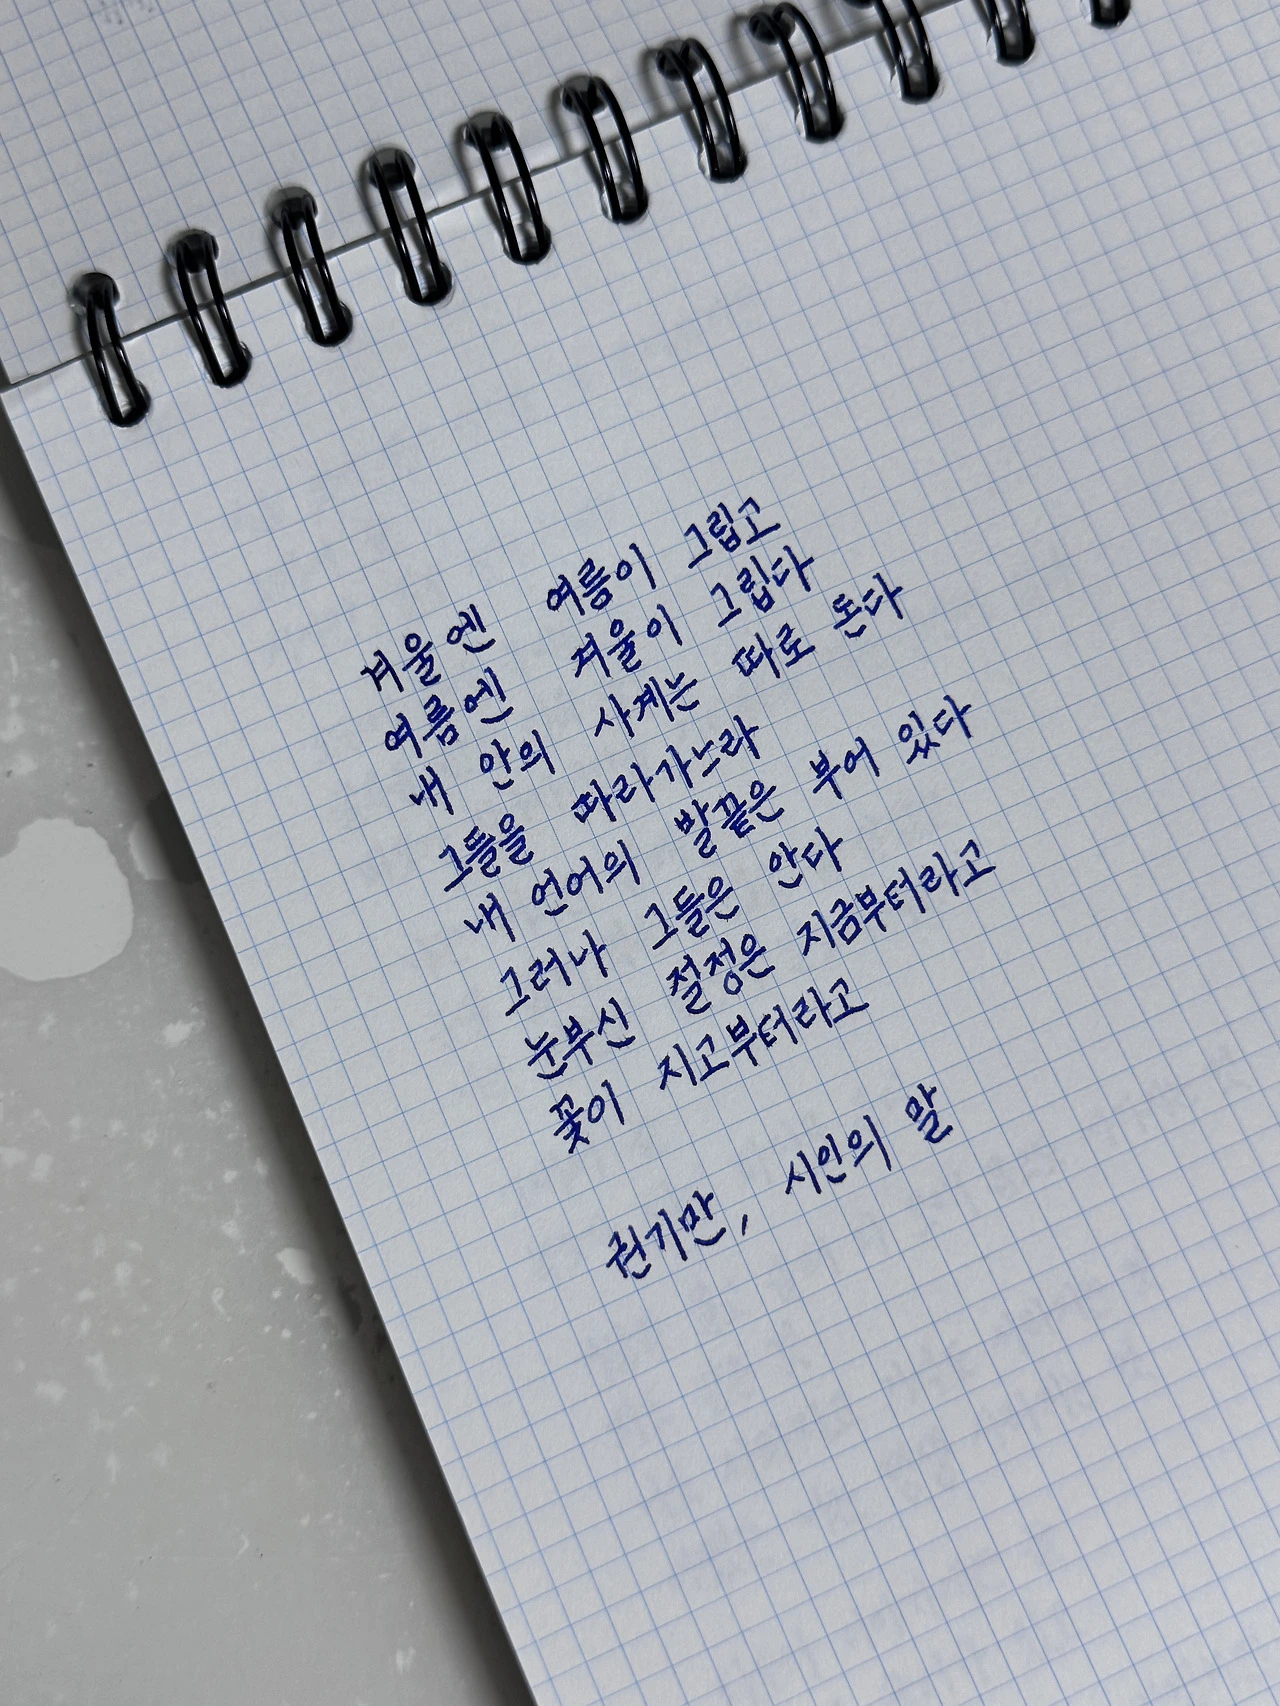 겨울엔 여름이 그립고
여름엔 겨울이 그립다
내 안의 사계는 따로 돈다
그들을 따라가느라
내 언어의 발끝은 부어 있다
그러나 그들은 안다
눈부신 절정은 지금부터라고
꽃이 지고부터라고
권기만, 시인의 말